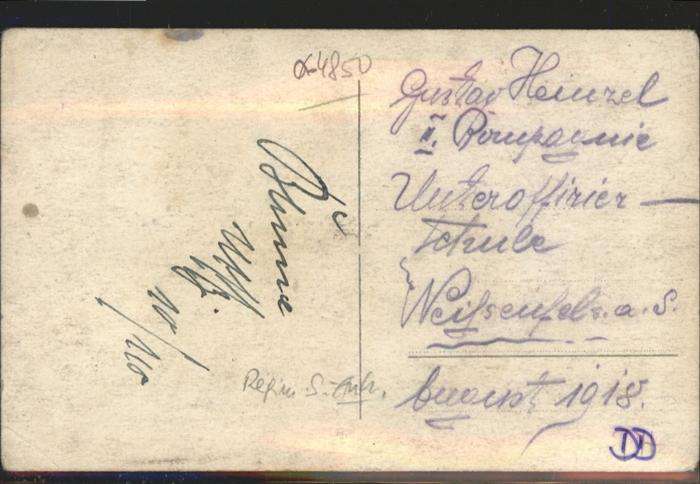 α-4850
Gustav Heinzel
II. Kompagnie
Unteroffizier-
schule
Weißenfels. a. S.
August 1918.
Blume
10/
Region S-Anh.
DD